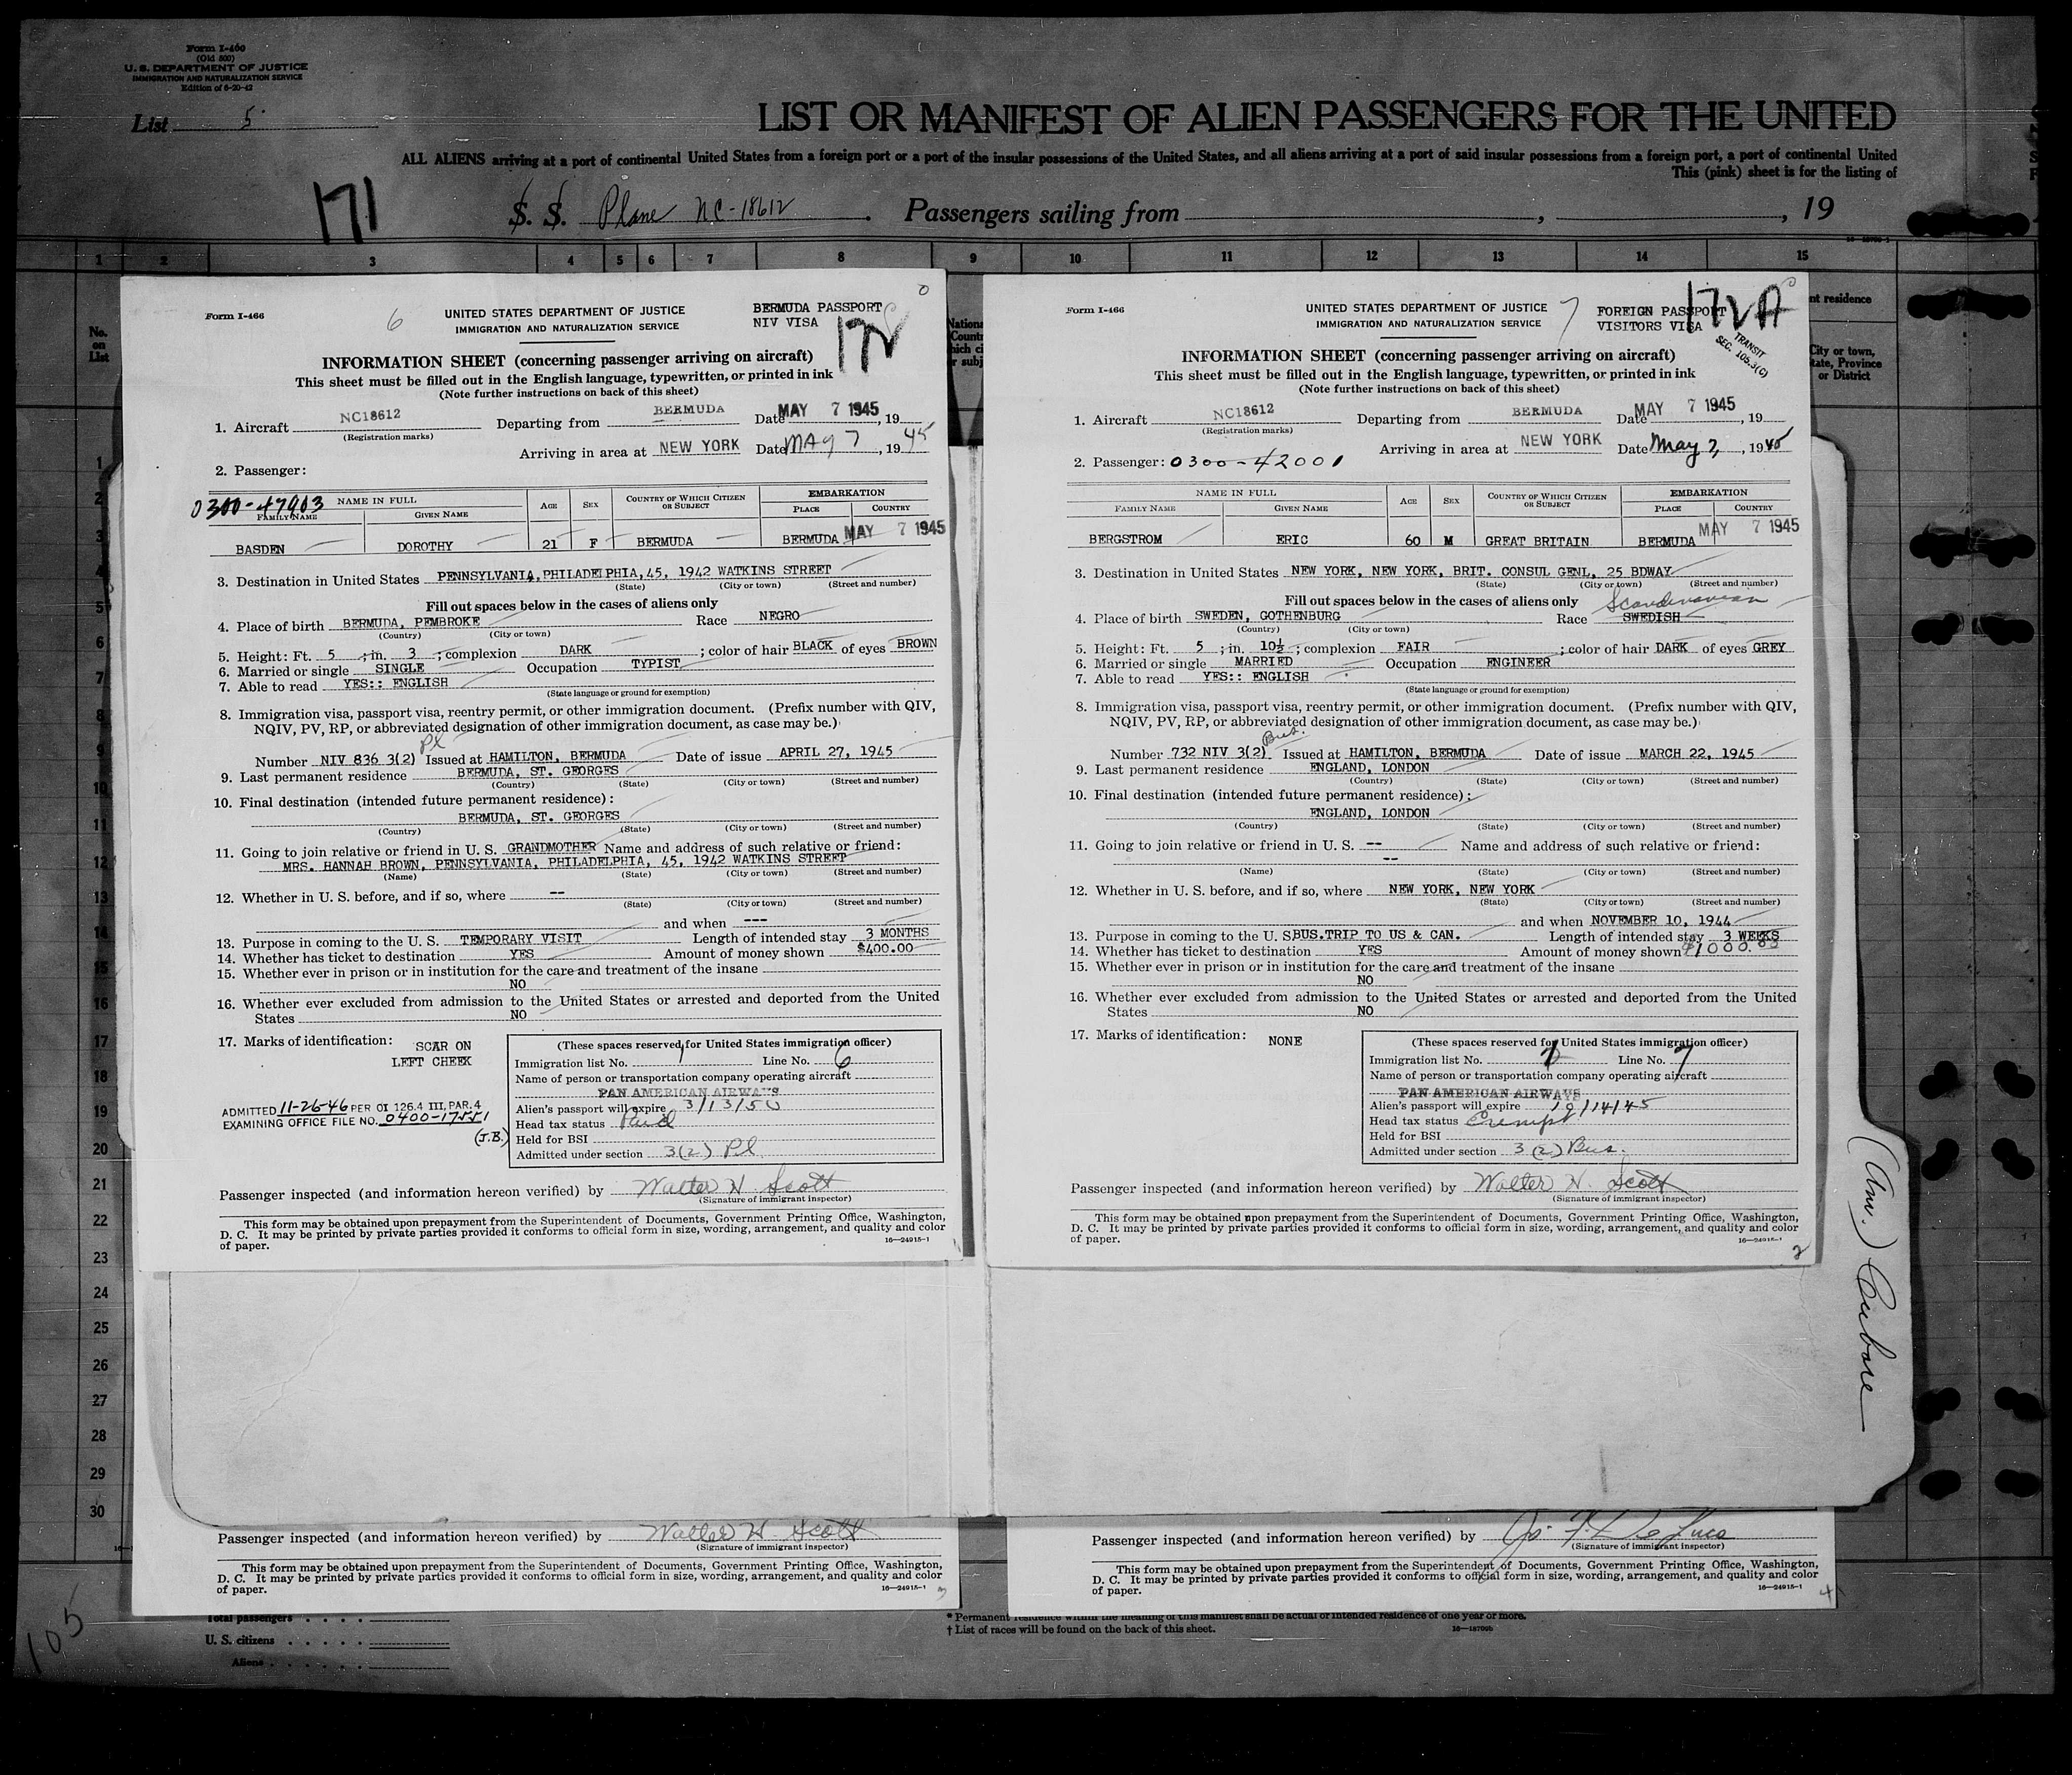 Form I-460
(Old 500)
U. S. DEPARTMENT OF JUSTICE
IMMIGRATION AND NATURALIZATION SERVICE
Edition of 6-20-42
List 5
LIST OR MANIFEST OF ALIEN PASSENGERS FOR THE UNITED
ALL ALIENS arriving at a port of continental United States from a foreign port or a port of the insular possessions of the United States, and all aliens arriving at a port of said insular possessions from a foreign port, a port of continental United
This (pink) sheet is for the listing of
171
S. S. Plane NC-18612. Passengers sailing from , , 19
1 2 3 4 5 6 7 8 9 10 11 12 13 14 15
No.
on
List
nt residence
City or town,
tate, Province
or District
1
2
3
4
5
6
7
8
9
10
11
12
13
14
15
16
17
18
19
20
21
22
23
24
25
26
27
28
29
30
Form I-466
6
UNITED STATES DEPARTMENT OF JUSTICE
IMMIGRATION AND NATURALIZATION SERVICE
BERMUDA PASSPORT
NIV VISA
INFORMATION SHEET (concerning passenger arriving on aircraft)
This sheet must be filled out in the English language, typewritten, or printed in ink
(Note further instructions on back of this sheet)
1. Aircraft NC18612 Departing from BERMUDA Date MAY 7 1945, 19
(Registration marks)
Arriving in area at NEW YORK Date MAY 7, 19 45
2. Passenger:
0300-47903 NAME IN FULL AGE SEX COUNTRY OF WHICH CITIZEN OR SUBJECT EMBARKATION
FAMILY NAME GIVEN NAME PLACE COUNTRY
BASDEN DOROTHY 21 F BERMUDA BERMUDA MAY 7 1945
3. Destination in United States PENNSYLVANIA, PHILADELPHIA, 45, 1942 WATKINS STREET
(State) (City or town) (Street and number)
Fill out spaces below in the cases of aliens only
4. Place of birth BERMUDA, PEMBROKE Race NEGRO
(Country) (City or town)
5. Height: Ft. 5; in. 3; complexion DARK; color of hair BLACK of eyes BROWN
6. Married or single SINGLE Occupation TYPIST
7. Able to read YES:: ENGLISH
(State language or ground for exemption)
8. Immigration visa, passport visa, reentry permit, or other immigration document. (Prefix number with QIV,
NQIV, PV, RP, or abbreviated designation of other immigration document, as case may be.)
Pl
Number NIV 836 3(2) Issued at HAMILTON, BERMUDA Date of issue APRIL 27, 1945
9. Last permanent residence BERMUDA, ST. GEORGES
(Country) (State) (City or town) (Street and number)
10. Final destination (intended future permanent residence):
BERMUDA, ST. GEORGES
(Country) (State) (City or town) (Street and number)
11. Going to join relative or friend in U. S. GRANDMOTHER Name and address of such relative or friend:
MRS. HANNAH BROWN, PENNSYLVANIA, PHILADELPHIA, 45, 1942 WATKINS STREET
(Name) (State) (City or town) (Street and number)
12. Whether in U. S. before, and if so, where --
(State) (City or town) (Street and number)
and when ---
13. Purpose in coming to the U. S. TEMPORARY VISIT Length of intended stay 3 MONTHS
14. Whether has ticket to destination YES Amount of money shown $400.00
15. Whether ever in prison or in institution for the care and treatment of the insane
NO
16. Whether ever excluded from admission to the United States or arrested and deported from the United
States NO
17. Marks of identification: SCAR ON
LEFT CHEEK
ADMITTED 11-26-46 PER OI 126.4 III, PAR. 4
EXAMINING OFFICE FILE NO. 0400-17551
(J.B.)
(These spaces reserved for United States immigration officer)
Immigration list No. 1 Line No. 6
Name of person or transportation company operating aircraft
PAN AMERICAN AIRWAYS
Alien's passport will expire 3/13/50
Head tax status Paid
Held for BSI
Admitted under section 3(2) Pl.
Passenger inspected (and information hereon verified) by Walter H. Scott
(Signature of immigrant inspector)
This form may be obtained upon prepayment from the Superintendent of Documents, Government Printing Office, Washington,
D. C. It may be printed by private parties provided it conforms to official form in size, wording, arrangement, and quality and color
of paper. 16—24915-1
Form I-466
7
UNITED STATES DEPARTMENT OF JUSTICE
IMMIGRATION AND NATURALIZATION SERVICE
FOREIGN PASSPORT
VISITORS VISA
TRANSIT
SEC. 105.3(C)
INFORMATION SHEET (concerning passenger arriving on aircraft)
This sheet must be filled out in the English language, typewritten, or printed in ink
(Note further instructions on back of this sheet)
1. Aircraft NC18612 Departing from BERMUDA Date MAY 7 1945, 19
(Registration marks)
Arriving in area at NEW YORK Date May 7, 1945
2. Passenger: 0300-42001
NAME IN FULL AGE SEX COUNTRY OF WHICH CITIZEN OR SUBJECT EMBARKATION
FAMILY NAME GIVEN NAME PLACE COUNTRY
BERGSTROM ERIC 60 M GREAT BRITAIN BERMUDA MAY 7 1945
3. Destination in United States NEW YORK, NEW YORK, BRIT. CONSUL GENL, 25 BDWAY
(State) (City or town) (Street and number)
Fill out spaces below in the cases of aliens only Scandinavian
4. Place of birth SWEDEN, GOTHENBURG Race SWEDISH
(Country) (City or town)
5. Height: Ft. 5; in. 10½; complexion FAIR; color of hair DARK of eyes GREY
6. Married or single MARRIED Occupation ENGINEER
7. Able to read YES:: ENGLISH
(State language or ground for exemption)
8. Immigration visa, passport visa, reentry permit, or other immigration document. (Prefix number with QIV,
NQIV, PV, RP, or abbreviated designation of other immigration document, as case may be.)
Bus.
Number 732 NIV 3(2) Issued at HAMILTON, BERMUDA Date of issue MARCH 22, 1945
9. Last permanent residence ENGLAND, LONDON
(Country) (State) (City or town) (Street and number)
10. Final destination (intended future permanent residence):
ENGLAND, LONDON
(Country) (State) (City or town) (Street and number)
11. Going to join relative or friend in U. S. -- Name and address of such relative or friend:
--
(Name) (State) (City or town) (Street and number)
12. Whether in U. S. before, and if so, where NEW YORK, NEW YORK
(State) (City or town) (Street and number)
and when NOVEMBER 10, 1944
13. Purpose in coming to the U. S. BUS.TRIP TO US & CAN. Length of intended stay 3 WEEKS
14. Whether has ticket to destination YES Amount of money shown $1000.00
15. Whether ever in prison or in institution for the care and treatment of the insane
NO
16. Whether ever excluded from admission to the United States or arrested and deported from the United
States NO
17. Marks of identification: NONE
(These spaces reserved for United States immigration officer)
Immigration list No. Line No. 7
Name of person or transportation company operating aircraft
PAN AMERICAN AIRWAYS
Alien's passport will expire
Head tax status Exempt
Held for BSI
Admitted under section 3(2) Bus.
Passenger inspected (and information hereon verified) by Walter H. Scott
(Signature of immigrant inspector)
This form may be obtained upon prepayment from the Superintendent of Documents, Government Printing Office, Washington,
D. C. It may be printed by private parties provided it conforms to official form in size, wording, arrangement, and quality and color
of paper. 16—24915-1
2
Passenger inspected (and information hereon verified) by Walter H. Scott
(Signature of immigrant inspector)
This form may be obtained upon prepayment from the Superintendent of Documents, Government Printing Office, Washington,
D. C. It may be printed by private parties provided it conforms to official form in size, wording, arrangement, and quality and color
of paper. 16—24915-1
3
Passenger inspected (and information hereon verified) by
(Signature of immigrant inspector)
This form may be obtained upon prepayment from the Superintendent of Documents, Government Printing Office, Washington,
D. C. It may be printed by private parties provided it conforms to official form in size, wording, arrangement, and quality and color
of paper. 16—24915-1
4
105
Total passengers
U. S. citizens
Aliens
* Permanent residence within the meaning of this manifest shall be actual or intended residence of one year or more.
† List of races will be found on the back of this sheet.